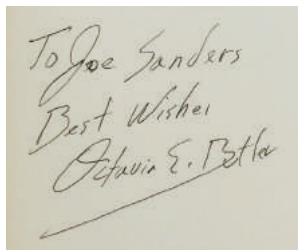 To Joe Sanders
Best Wishes
Octavia E. Butler